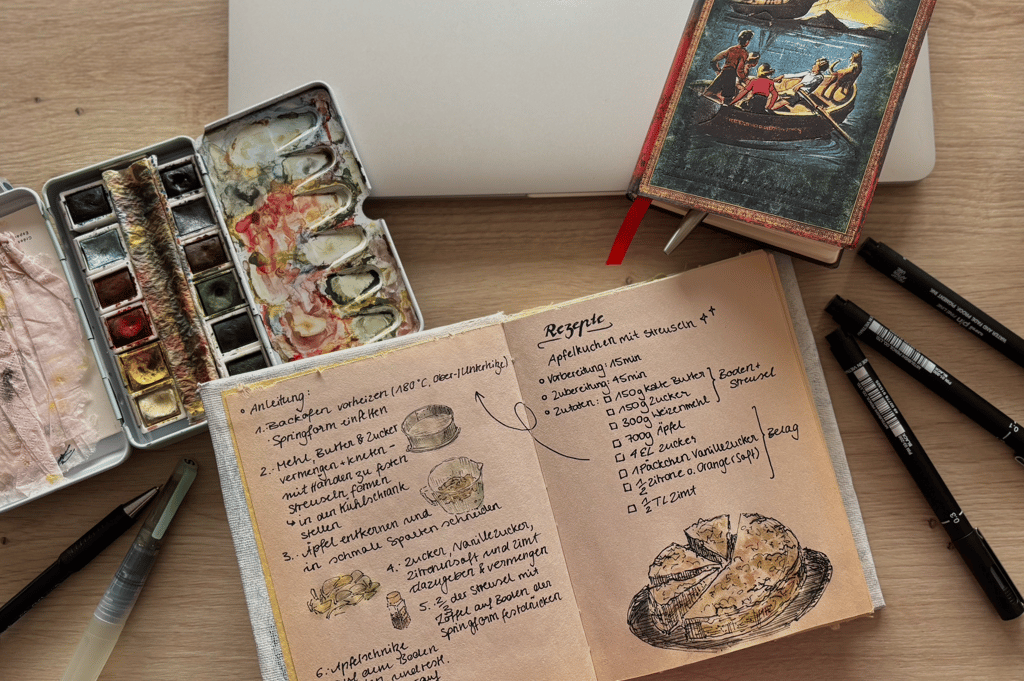 ° Anleitung:
1. Backofen vorheizen (180°C, Ober-/Unterhitze)
Springform einfetten
2. Mehl, Butter & Zucker
vermengen + kneten –
mit Händen zu festen
Streuseln formen
↳ in den Kühlschrank
stellen
3. Äpfel entkernen und
in schmale Spalten schneiden
4. Zucker, Vanillezucker,
Zitronensaft und Zimt
dazugeben & vermengen
5. 2/3 der Streusel mit
Löffel auf Boden der
Springform festdrücken
6. Apfelschnitze
auf dem Boden
und restl.
auf
Rezepte
Apfelkuchen mit Streuseln
° Vorbereitung: 15min
° Zubereitung: 45min
° Zutaten: □ 150g kalte Butter
□ 150g Zucker
□ 300g Weizenmehl
Boden +
Streusel
□ 700g Äpfel
□ 4 EL Zucker
□ 1 Päckchen Vanillezucker
□ 1/2 Zitrone o. Orange (Saft)
□ 1/2 TL Zimt
Belag